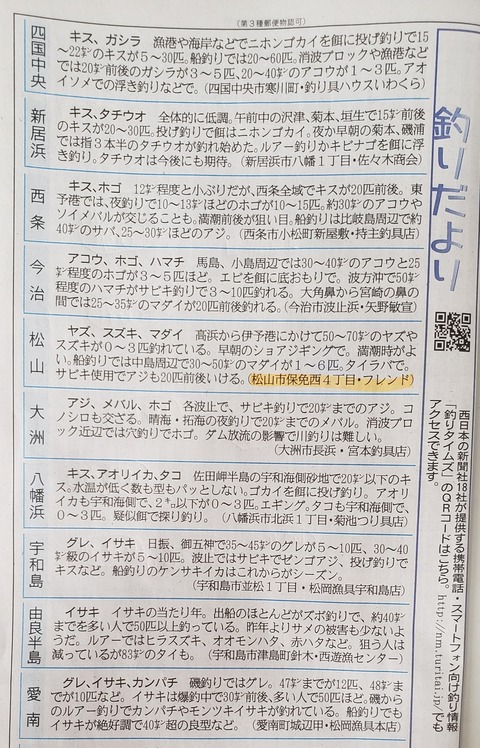 (第3種郵便物認可)
釣りだより
四国中央
キス、ガシラ 漁港や海岸などでニホンゴカイを餌に投げ釣りで15
～22㌢のキスが5～30匹。船釣りでは20～60匹。消波ブロックや漁港など
では20㌢前後のガシラが3～5匹、20～40㌢のアコウが1～3匹。アオ
イソメでの浮き釣りなどで。(四国中央市寒川町・釣り具ハウスいわくら)
新居浜
キス、タチウオ 全体的に低調。午前中の沢津、菊本、垣生で15㌢前後
のキスが20～30匹。投げ釣りで餌はニホンゴカイ。夜か早朝の菊本、磯浦
では指3本半のタチウオが釣れ始めた。ルアー釣りかキビナゴを餌に浮
き釣り。タチウオは今後にも期待。(新居浜市八幡1丁目・佐々木商会)
西条
キス、ホゴ 12㌢程度と小ぶりだが、西条全域でキスが20匹前後。東
予港では、夜釣りで10～13㌢ほどのホゴが10～15匹。約30㌢のアコウや
ソイメバルが交じることも。満潮前後が狙い目。船釣りは比岐島周辺で約
40㌢のサバ、25～30㌢ほどのアジ。(西条市小松町新屋敷・持主釣具店)
今治
アコウ、ホゴ、ハマチ 馬島、小島周辺では30～40㌢のアコウと25
㌢程度のホゴが3～5匹ほど。エビを餌に底おもりで。波方沖で50㌢
程度のハマチがサビキ釣りで3～10匹釣れる。大角鼻から宮崎の鼻
の間では25～35㌢のマダイが20匹前後釣れる。(今治市波止浜・矢野敏宣)
松山
ヤズ、スズキ、マダイ 高浜から伊予港にかけて50～70㌢のヤズや
スズキが0～3匹釣れている。早朝のショアジギングで。満潮時がよ
い。船釣りでは中島周辺で30～50㌢のマダイが1～6匹。タイラバで。
サビキ使用でアジも20匹前後いける。(松山市保免西4丁目・フレンド)
大洲
アジ、メバル、ホゴ 各波止で、サビキ釣りで20㌢までのアジ。コ
ノシロも交ざる。晴海・拓海の夜釣りで20㌢までのメバル。消波ブロ
ック近辺では穴釣りでホゴ。ダム放流の影響で川釣りは難しい。
(大洲市長浜・宮本釣具店)
八幡浜
キス、アオリイカ、タコ 佐田岬半島の宇和海側砂地で20㌢以下のキ
ス。水温が低く数も型もパッとしない。ゴカイを餌に投げ釣り。アオリ
イカも宇和海側で、2㌔以下が0～3匹。エギング。タコも宇和海側で、
0～3匹。疑似餌で探り釣り。(八幡浜市北浜1丁目・菊池つり具店)
宇和島
グレ、イサキ 日振、御五神で35～45㌢のグレが5～10匹、30～40
㌢級のイサキが5～10匹。波止ではサビキでゼンゴアジ、投げ釣りで
キスなど。船釣りのケンサキイカはこれからがシーズン。
(宇和島市並松1丁目・松岡漁具宇和島店)
由良半島
イサキ イサキの当たり年。出船のほとんどがズボ釣りで、約40㌢
までを多い人で50匹以上釣っている。昨年よりサメの被害も少ないよ
うだ。ルアーではヒラスズキ、オオモンハタ、赤ハタなど。狙う人は
減っているが83㌢のタイも。(宇和島市津島町針木・西遊漁センター)
愛南
グレ、イサキ、カンパチ 磯釣りではグレ。47㌢までが12匹、48㌢ま
でが10匹など。イサキは爆釣中で30匹前後、多い人で50匹ほど。磯から
のルアー釣りでカンパチやモンツキイサギが釣れている。船釣りでも
イサキが絶好調で40㌢超の良型など。(愛南町城辺甲・松岡漁具本店)
西日本の新聞社18社が提供する携帯電話・スマートフォン向け釣り情報
「釣りタイムズ」のQRコードはこちら。http://nm.turitai.jp/でも
アクセスできます。